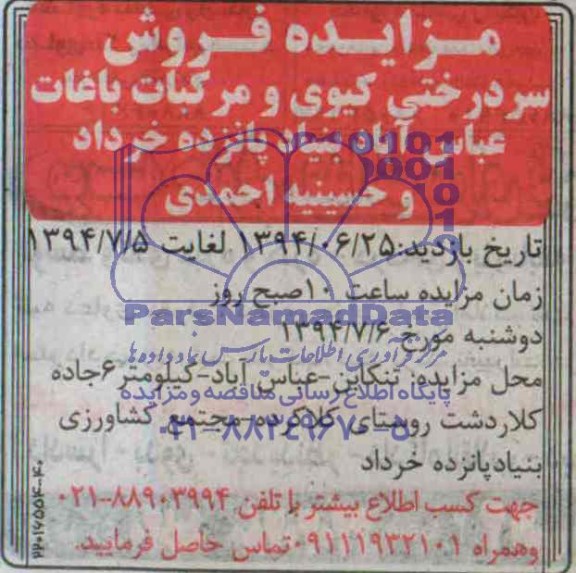 مزایده فروش
سردرختی کیوی و مرکبات باغات
عباس آباد بنیاد پانزده خرداد
و حسینیه احمدی
تاریخ بازدید: ۱۳۹۴/۰۶/۲۵ لغایت ۱۳۹۴/۷/۵
زمان مزایده ساعت ۱۰ صبح روز
دوشنبه مورخ ۱۳۹۴/۷/۶
محل مزایده: تنکابن-عباس آباد-کیلومتر ۶ جاده
کلاردشت روستای کلاکرده-مجتمع کشاورزی
بنیاد پانزده خرداد
جهت کسب اطلاع بیشتر با تلفن ۸۸۹۰۳۹۹۴-۰۲۱
وهمراه ۰۹۱۱۱۹۳۲۱۰۱ تماس حاصل فرمایید.
ParsNamadData
مرکز فرآوری اطلاعات پارس نماد داده ها
پایگاه اطلاع رسانی مناقصه و مزایده
۰۲۱-۸۸۳۴۹۶۷۰-۵